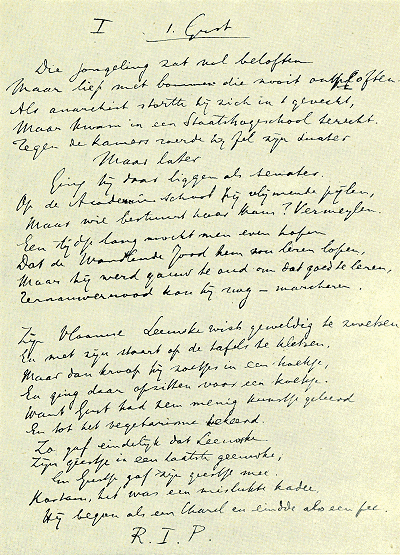 I   1. Gust
Die jongeling zat vol beloften
Maar liep met bommen die nooit ontploften.
Als anarchist stortte hij zich in 't gevecht,
Maar kwam in een Staatshogeschool terecht.
Tegen de kamers voerde hij fel zijn
Maar later
Ging hij daar liggen als senator.
Op de Academie schoot hij vlijmende pijlen,
Maar wie bestuurt haar thans? Vermeylen.
Een tijdje lang mocht men even hopen
Dat de Wandelende Jood hem zou leren lopen,
Maar hij werd gauw te oud om dat goed te leren,
Ternauwernood kon hij nog – marcheren.
Zijn Vlaamse Leeuwke wist geweldig te zwetsen
En met zijn staart op de tafels te kletsen.
Maar dan kroop hij zoetjes in een hoekje,
En ging daar opzitten voor een koekje.
Want Gust had hem menig kunstje geleerd
En tot het vegetarisme bekeerd.
Zo gaf eindelijk dat Leeuwke
Zijn geestje in een laatste geeuwke,
En Gustje gaf zijn geestje mee.
Kortom, het was een mislukte kadee,
Hij begon als een Charel en eindde als een fee.
R.I.P.